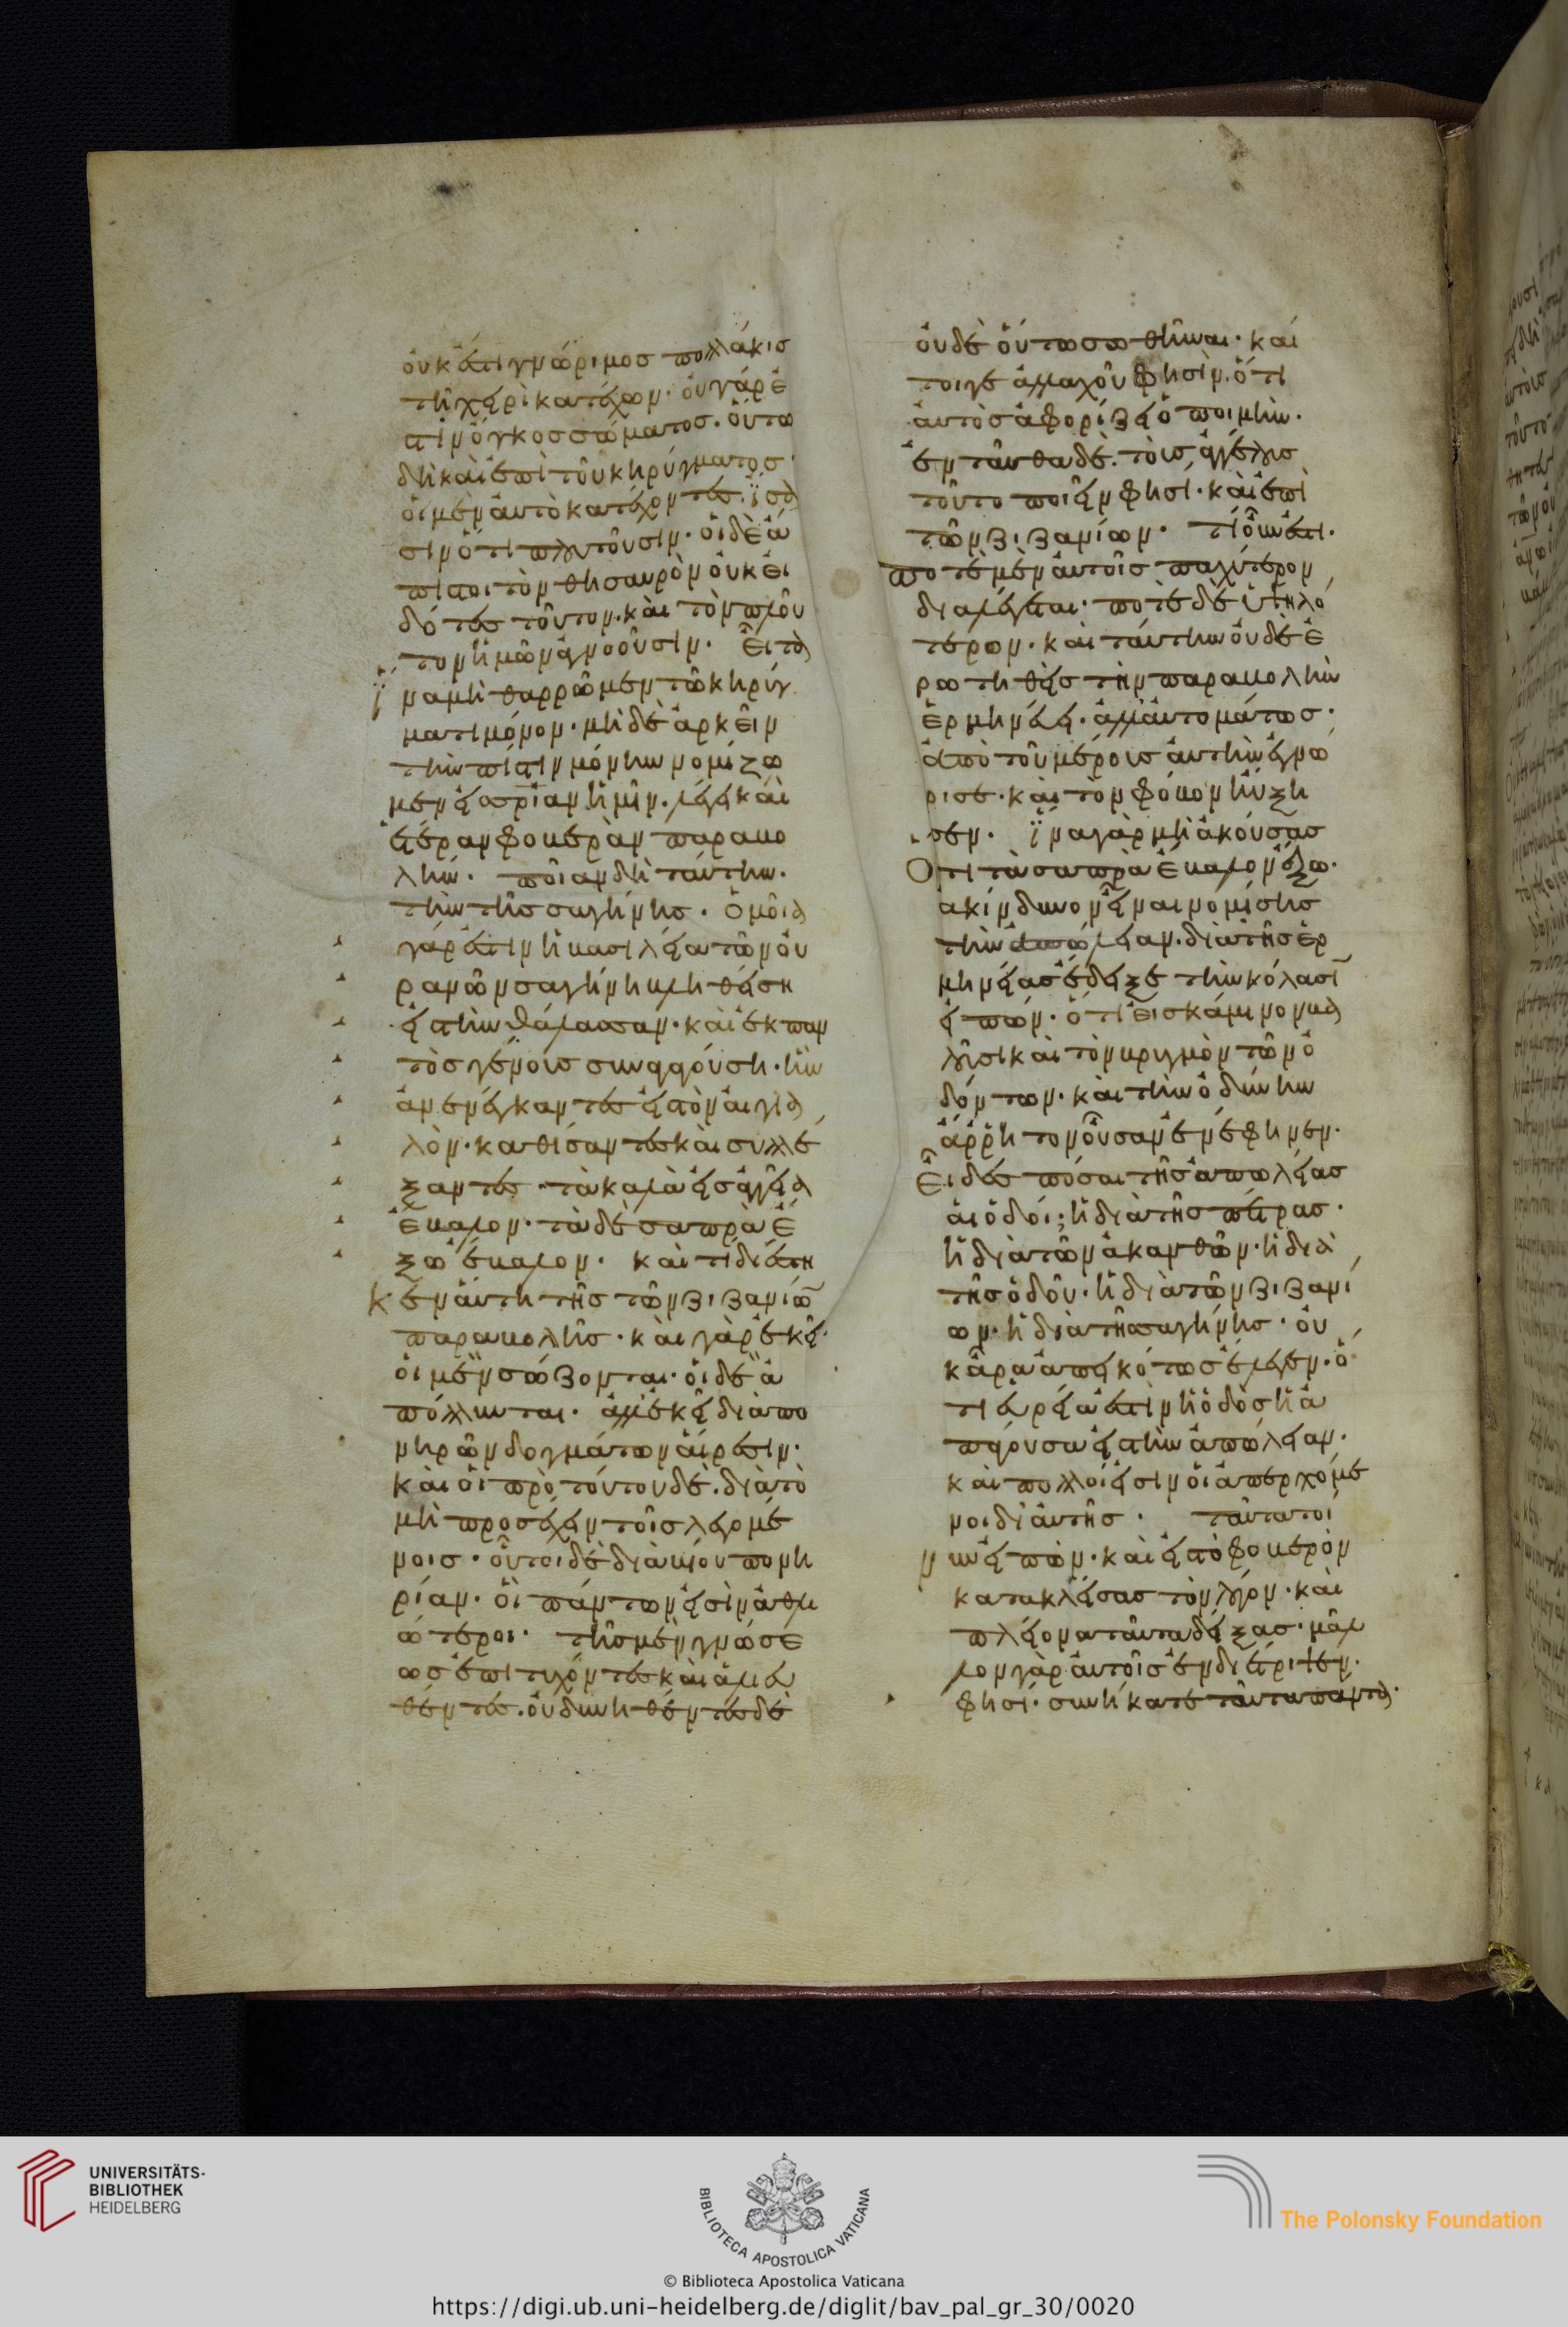 οὐκ ἔστι γνώριμος πολλάκις
τῇ χειρὶ κατέχων· οὐ γάρ ἐ
στιν ὄγκος σώματος. οὕτω
δὴ καὶ ἐπὶ τοῦ κηρύγματος·
οἱ μὲν αὐτὸ κατέχοντες· ἴσα
σιν ὅτι πλουτοῦσιν· οἱ δὲ ἄ
πιστοι τὸν θησαυρὸν οὐκ εἰ
δότες τοῦτον. καὶ τὸν πλοῦ
τον ἡμῶν ἀγνοοῦσιν. Εἶτα
ἵνα μὴ θαρρῶμεν τῷ κηρύγ
ματι μόνον· μηδὲ ἀρκεῖν
τὴν πίστιν μόνην νομίζω
μεν εἰς σρίαν ἡμῖν. λέγει καὶ
ἑτέραν φοβερὰν παραβο
λήν. ποίαν δὴ ταύτην.
τὴν τῆς σαγήνης. Ὁμοία
γάρ ἐστιν ἡ βασιλεία τῶν οὐ
ρανῶν σαγήνη βληθείση
εἰς τὴν θάλασσαν· καὶ ἐκ παν
τὸς γένους συναγούση· ἣν
ἀνενέγκαντες εἰς τὸν αἰγια
λὸν· καθίσαντες καὶ συλλέ
ξαντες τὰ καλὰ εἰς ἀγγεῖα
ἔβαλον· τὰ δὲ σαπρὰ ἔ
ξω ἔβαλον. καὶ τί διέστη
κεν αὕτη τῆς τῶν ζιζανίων
παραβολῆς· καὶ γὰρ ἐκεῖ·
οἱ μὲν σώζονται· οἱ δὲ ἀ
πόλλυνται. ἀλλ' ἐκεῖ διὰ πο
νηρῶν δογμάτων αἵρεσιν.
καὶ οἱ πρὸ τούτου δὲ. διὰ τὸ
μὴ προσέχειν τοῖς λεγομέ
νοις· οὗτοι δὲ διὰ βίου πονη
ρίαν. οἳ πάντων εἰσὶν ἀθλι
ώτεροι· τῆς μὲν γνώσε
ως ἐπιτυχόντες καὶ ἁλιευ
θέντες. οὐ δυνηθέντες δὲ
οὐδὲ οὕτω σωθῆναι· καί
τοιγε ἀλλαχοῦ φησὶν. ὅτι
αὐτὸς ἀφορίζει ὁ ποιμήν.
ἐνταῦθα δὲ. τοὺς ἀγγέλους
τοῦτο ποιεῖν φησι· καὶ ἐπὶ
τῶν ζιζανίων. τί οὖν ἐστι.
ποτὲ μὲν αὐτοῖς παχύτερον
διαλέγεται· ποτὲ δὲ ὑψηλό
τερον. καὶ ταύτην οὐδὲ ἐ
ρωτηθεὶς τὴν παραβολὴν
ἑρμηνεύει. ἀλλ' αὐτομάτως·
ἀπὸ τοῦ μέρους αὐτὴν ἐγνώ
ρισε· καὶ τὸν φόβον ηὔξη
σεν. ἵνα γὰρ μὴ ἀκούσας
Ὅτι τὰ σαπρὰ ἔβαλον ἔξω.
ἀκίνδυνον εἶναι νομίσης
τὴν ἀπώλειαν. διὰ τῆς ἑρ
μηνείας ἔδειξε τὴν κόλασῑ
εἰπών. ὅτι εἰς κάμινον βα
λοῦσι καὶ τὸν βρυγμὸν τῶν ὀ
δόντων· καὶ τὴν ὀδύνην
ἄρρητον οὖσαν ἐνέφηνεν.
Εἶδες πόσαι τῆς ἀπωλείας
αἱ ὁδοί; ἢ διὰ τῆς πέτρας.
ἢ διὰ τῶν ἀκανθῶν· ἢ διὰ
τῆς ὁδοῦ· ἢ διὰ τῶν ζιζανί
ων· ἢ διὰ τῆς σαγήνης· οὐ
κ ἄρα ἀπεικότως ἔλεγεν. ὅ
τι εὐρεῖά ἐστιν ἡ ὁδὸς ἡ ἀ
πάγουσα εἰς τὴν ἀπώλειαν.
καὶ πολλοὶ εἰσὶν οἱ ἀπερχόμε
νοι δι' αὐτῆς. ταῦτα τοί
νυν εἰπὼν· καὶ εἰς τὸ φοβερὸν
κατακλείσας τὸν λόγον· καὶ
πλείονα ταῦτα δείξας· μᾶλ
λον γὰρ αὐτοῖς ἐνδιέτριψεν.
φησί· συνήκατε ταῦτα πάντα·
UNIVERSITÄTS-
BIBLIOTHEK
HEIDELBERG
BIBLIOTECA APOSTOLICA VATICANA
The Polonsky Foundation
© Biblioteca Apostolica Vaticana
https://digi.ub.uni-heidelberg.de/diglit/bav_pal_gr_30/0020